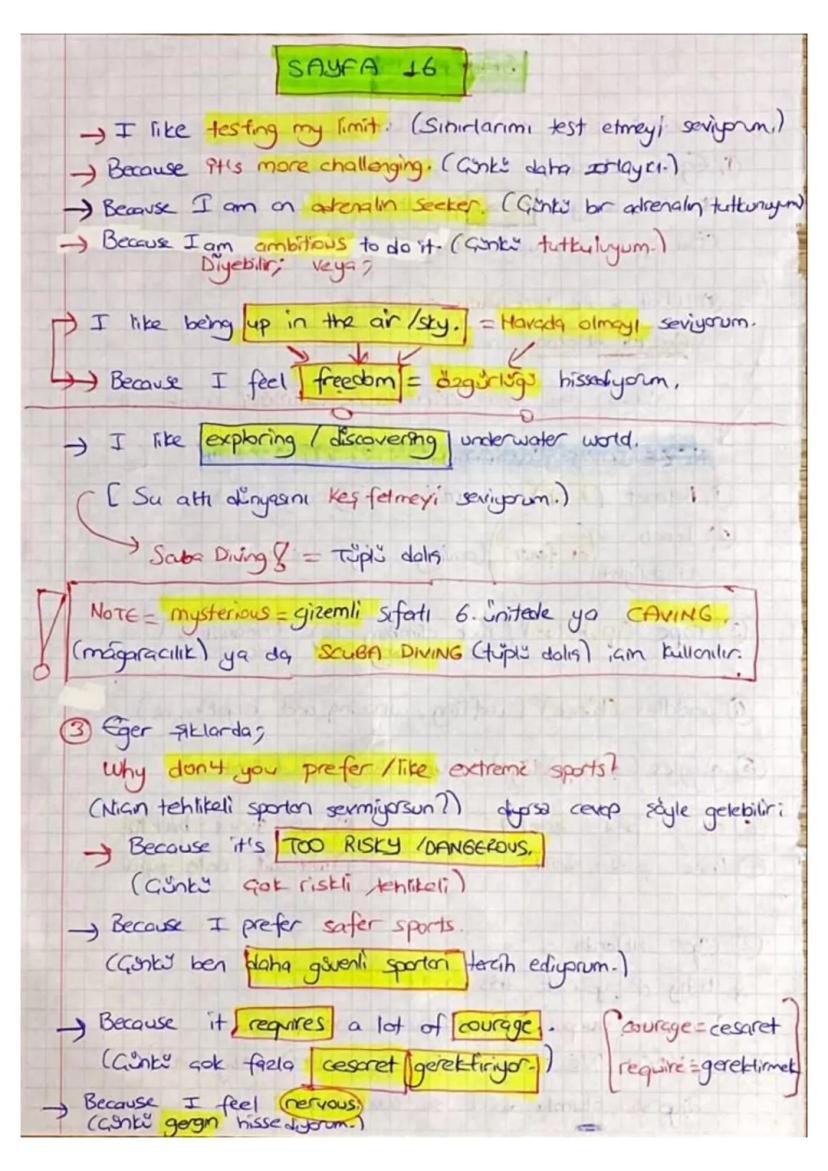 SAYFA 16
→ I like testing my limit. (Sınırlarımı test etmeyi seviyorum.)
→ Because it's more challenging. (Çünkü daha zorlayıcı.)
→ Because I am an adrenalin seeker. (Çünkü bir adrenalin tutkunuyum)
→ Because I am ambitious to do it. (Çünkü tutkuluyum.)
Diyebilir; veya;
→ I like being up in the air /sky. = Havada olmayı seviyorum.
→ Because I feel freedom = özgürlüğü hissediyorum.
→ I like exploring / discovering underwater world.
[ Su altı dünyasını keşfetmeyi seviyorum.)
Scuba Diving = Tüplü dalış
NOTE = mysterious = gizemli sıfatı 6. ünitede ya CAVING
(mağaracılık) ya da SCUBA DIVING (tüplü dalış) için kullanılır.
③ Eğer şıklarda;
Why don't you prefer / like extreme sports?
(Niçin tehlikeli sporları sevmiyorsun?) diyorsa cevap şöyle gelebilir:
→ Because it's TOO RISKY /DANGEROUS.
(Çünkü çok riskli tehlikeli)
→ Because I prefer safer sports.
(Çünkü ben daha güvenli sporları tercih ediyorum.)
→ Because it requires a lot of courage. courage = cesaret
(Çünkü çok fazla cesaret gerektiriyor.) require = gerektirmek
→ Because I feel nervous.
(Çünkü gergin hissediyorum.)